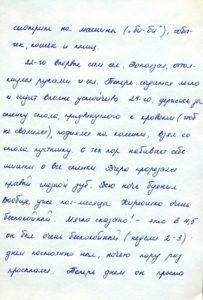 смотрит на машины ("би-би"), соба-
чек, кошек и птиц.
22-го впервые сам сел. Поползал, оттол-
кнулся руками и сел. Теперь садится легко
и сидит вполне устойчиво. 24-го, держась за
стенку стола, придвинутого к кровати (чтоб
не свалился), поднялся на коленки, взял со
стола пустышку. С тех пор набивает себе
шишки о все стенки. Вчера прорезался
правый глазной зуб. Всю ночь бузотил
вообще, уже пол-месяца Кирюшка очень
беспокойный. Мягко сказано! - это в 4,5
он был очень беспокойный (недели 2-3):
днем постоянно ныл, ночью пару раз
просыпался. Теперь днем он просто